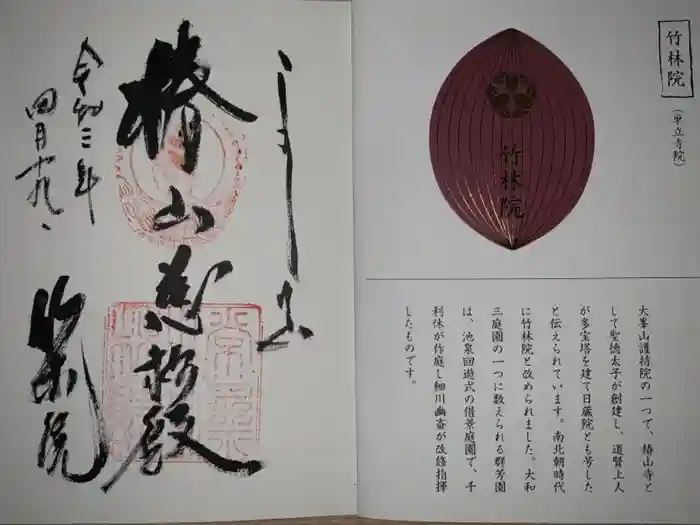 竹林院
(単立寺院)
竹林院
大峯山護持院の一つで、椿山寺と
して聖徳太子が創建し、道賢上人
が多宝塔を建て日蔵院とも号した
と伝えられています。南北朝時代
に竹林院と改められました。大和
三庭園の一つに数えられる群芳園
は、池泉回遊式の借景庭園で、千
利休が作庭し細川幽斎が改修指揮
したものです。
よしの山
椿山蔵王殿
令和三年
四月十九日
竹林院